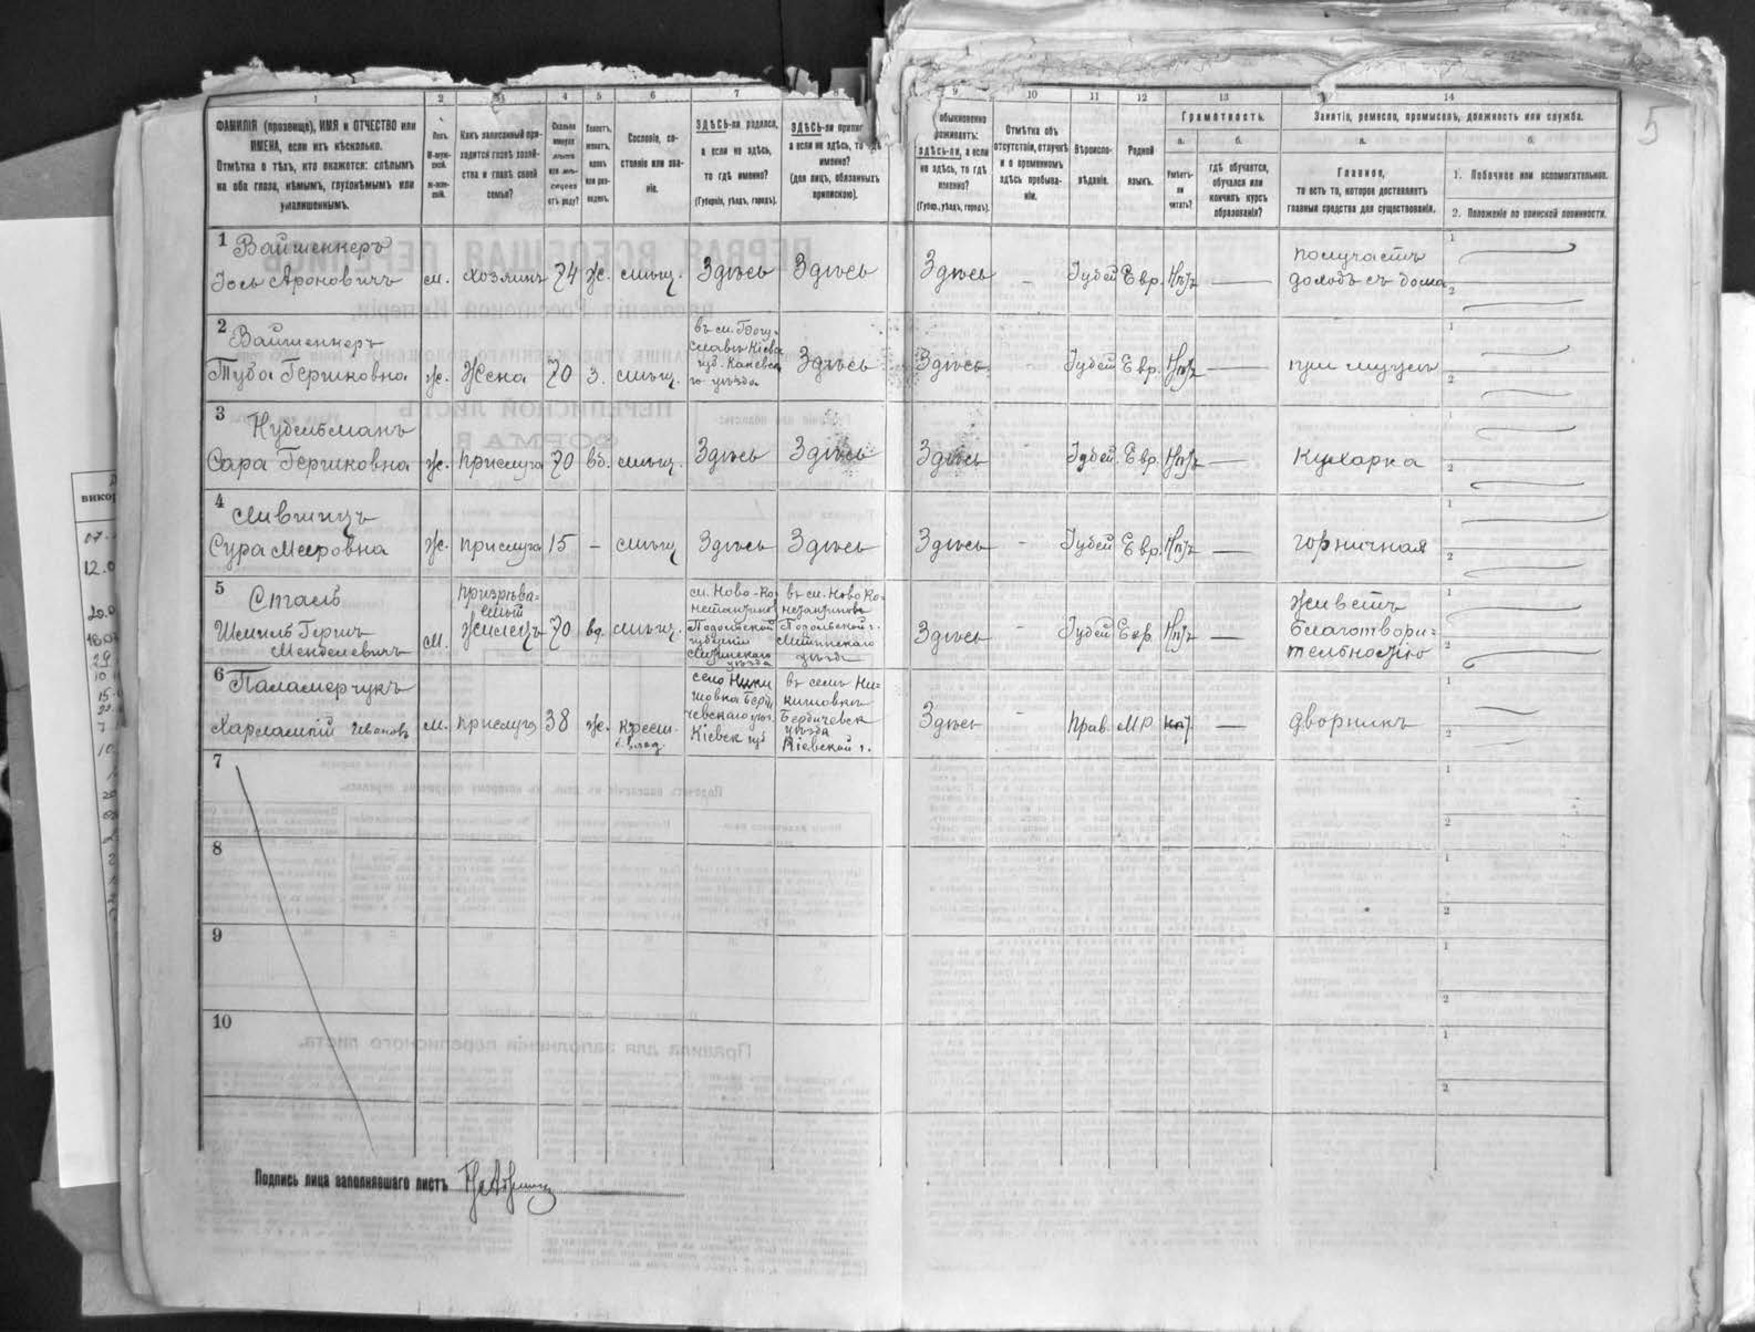 1 2 3 4 5 6 7 8 9 10 11 12 13 14
5
ФАМИЛІЯ (прозвище), ИМЯ и ОТЧЕСТВО или
ИМЕНА, если ихъ нѣсколько.
Отмѣтка о тѣхъ, кто окажется: слѣпымъ
на оба глаза, нѣмымъ, глухонѣмымъ или
умалишеннымъ.
Полъ.
М-муж-
ской.
Ж-жен-
скій.
Какъ записанный при-
ходится главѣ хозяй-
ства и главѣ своей
семьи?
Сколько
минуло
лѣтъ
или мѣ-
сяцевъ
отъ роду?
Холостъ,
женатъ,
вдовъ
или раз-
веденъ.
Сословіе, со-
стояніе или зва-
ніе.
ЗДѢСЬ-ли родился,
а если не здѣсь,
то гдѣ именно?
(Губернія, уѣздъ, городъ).
ЗДѢСЬ-ли
а если не здѣсь, то
именно?
(для лицъ, обязанныхъ
припискою).
обыкновенно
проживаетъ:
ЗДѢСЬ-ли, а если
не здѣсь, то гдѣ
именно?
(Губер., уѣздъ, городъ).
Отмѣтка объ
отсутствіи, отлучкѣ
и о временномъ
здѣсь пребыва-
ніи.
Вѣроиспо-
вѣданіе.
Родной
языкъ.
Грамотность.
а.
Умѣетъ-
ли
читать?
б.
гдѣ обучается,
обучался или
кончилъ курсъ
образованія?
Занятіе, ремесло, промыселъ, должность или служба.
а.
Главное,
то есть то, которое доставляетъ
главныя средства для существованія.
б.
1. Побочное или вспомогательное.
2. Положеніе по воинской повинности.
1 Вайшенкеръ
Іось Ароновичъ м. хозяинъ 74 ж. мѣщ. Здѣсь Здѣсь Здѣсь - Іудей Евр. Нѣтъ —
получаетъ
доходъ съ дома
1
2
2 Вайшенкеръ
Туба Гершковна ж. Жена 70 з. мѣщ.
въ м. Богу-
славѣ Кіевс
губ. Каневск
го уѣзда
Здѣсь Здѣсь Іудей Евр. Нѣтъ — при мужѣ
1
2
3 Нудельманъ
Сара Гершковна ж. прислуга 70 вд. мѣщ. Здѣсь Здѣсь Здѣсь - Іудей Евр. Нѣтъ — Кухарка
1
2
4 Лившицъ
Сура Мееровна ж. прислуга 15 – мѣщ. Здѣсь Здѣсь Здѣсь - Іудей Евр. Нѣтъ — горничная
1
2
5 Сталь
Шмиль Гершъ
Менделевичъ м.
призрѣва-
емый
Жилецъ 70 вд. мѣщ.
м. Ново-Ко
нстантинов
Подольской
губерніи
Литинскаго
уѣзда
въ м. Ново Ко-
нстантиновѣ
Подольской г.
Литинскаго
уѣзда
Здѣсь Іудей Евр. Нѣтъ —
Живетъ
благотвори-
тельностію
1
2
6 Паламарчукъ
Харлампій Ивановъ м. прислуга 38 ж. крест.
село Ники
шовка Берди
чевскаго уѣз.
Кіевск губ
въ селѣ Ни-
кишовкѣ
Бердичевск
уѣзда
Кіевской г.
Здѣсь - Прав. МР нѣт. — дворникъ
1
2
7
1
2
8
1
2
9
1
2
10
1
2
Подпись лица заполнявшаго листъ